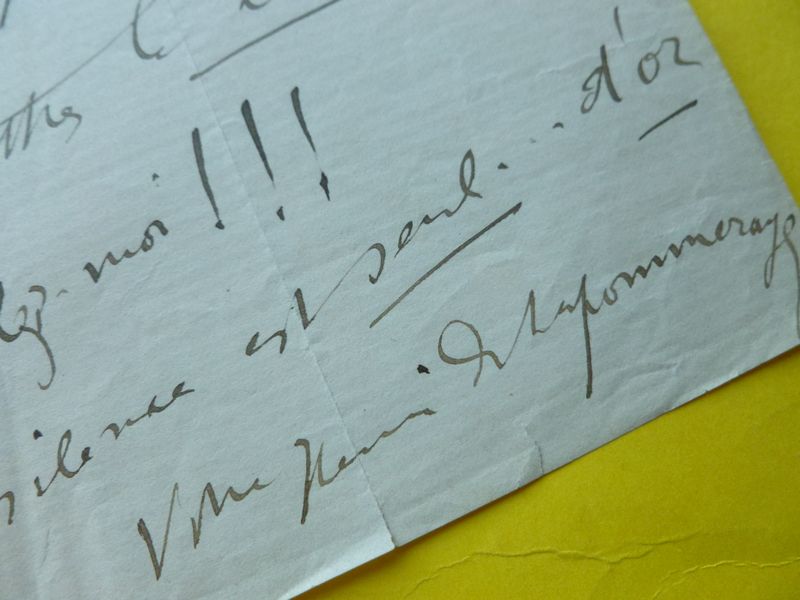 moi !!!
silence est seul ... d'or
Votre Henri de Lapommeraye